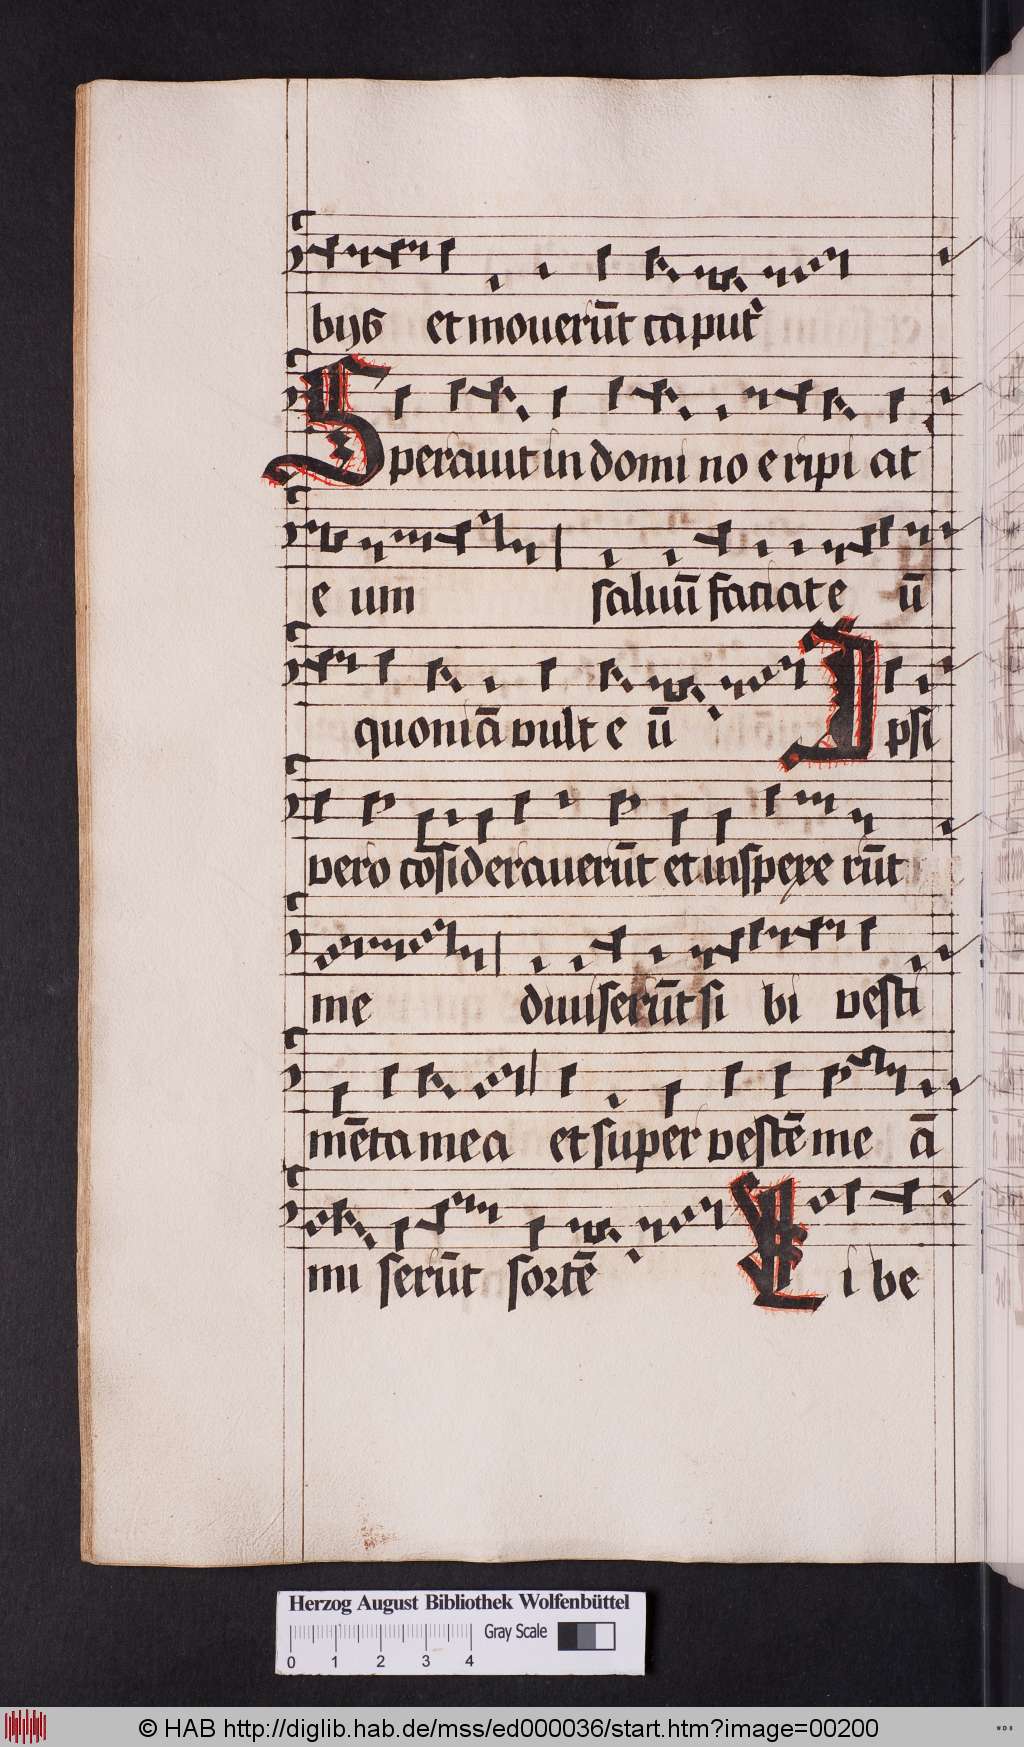 bijs et mouerūt caput
Sperauit in domino eripiat
eum saluū faciat eū
quoniā vult eū Ipsi
vero cōsiderauerūt et inspexerūt
me diuiserūt sibi vesti
mēta mea et super vestē meā
miserūt sortē Libe
Herzog August Bibliothek Wolfenbüttel
Gray Scale
0 1 2 3 4
© HAB http://diglib.hab.de/mss/ed000036/start.htm?image=00200